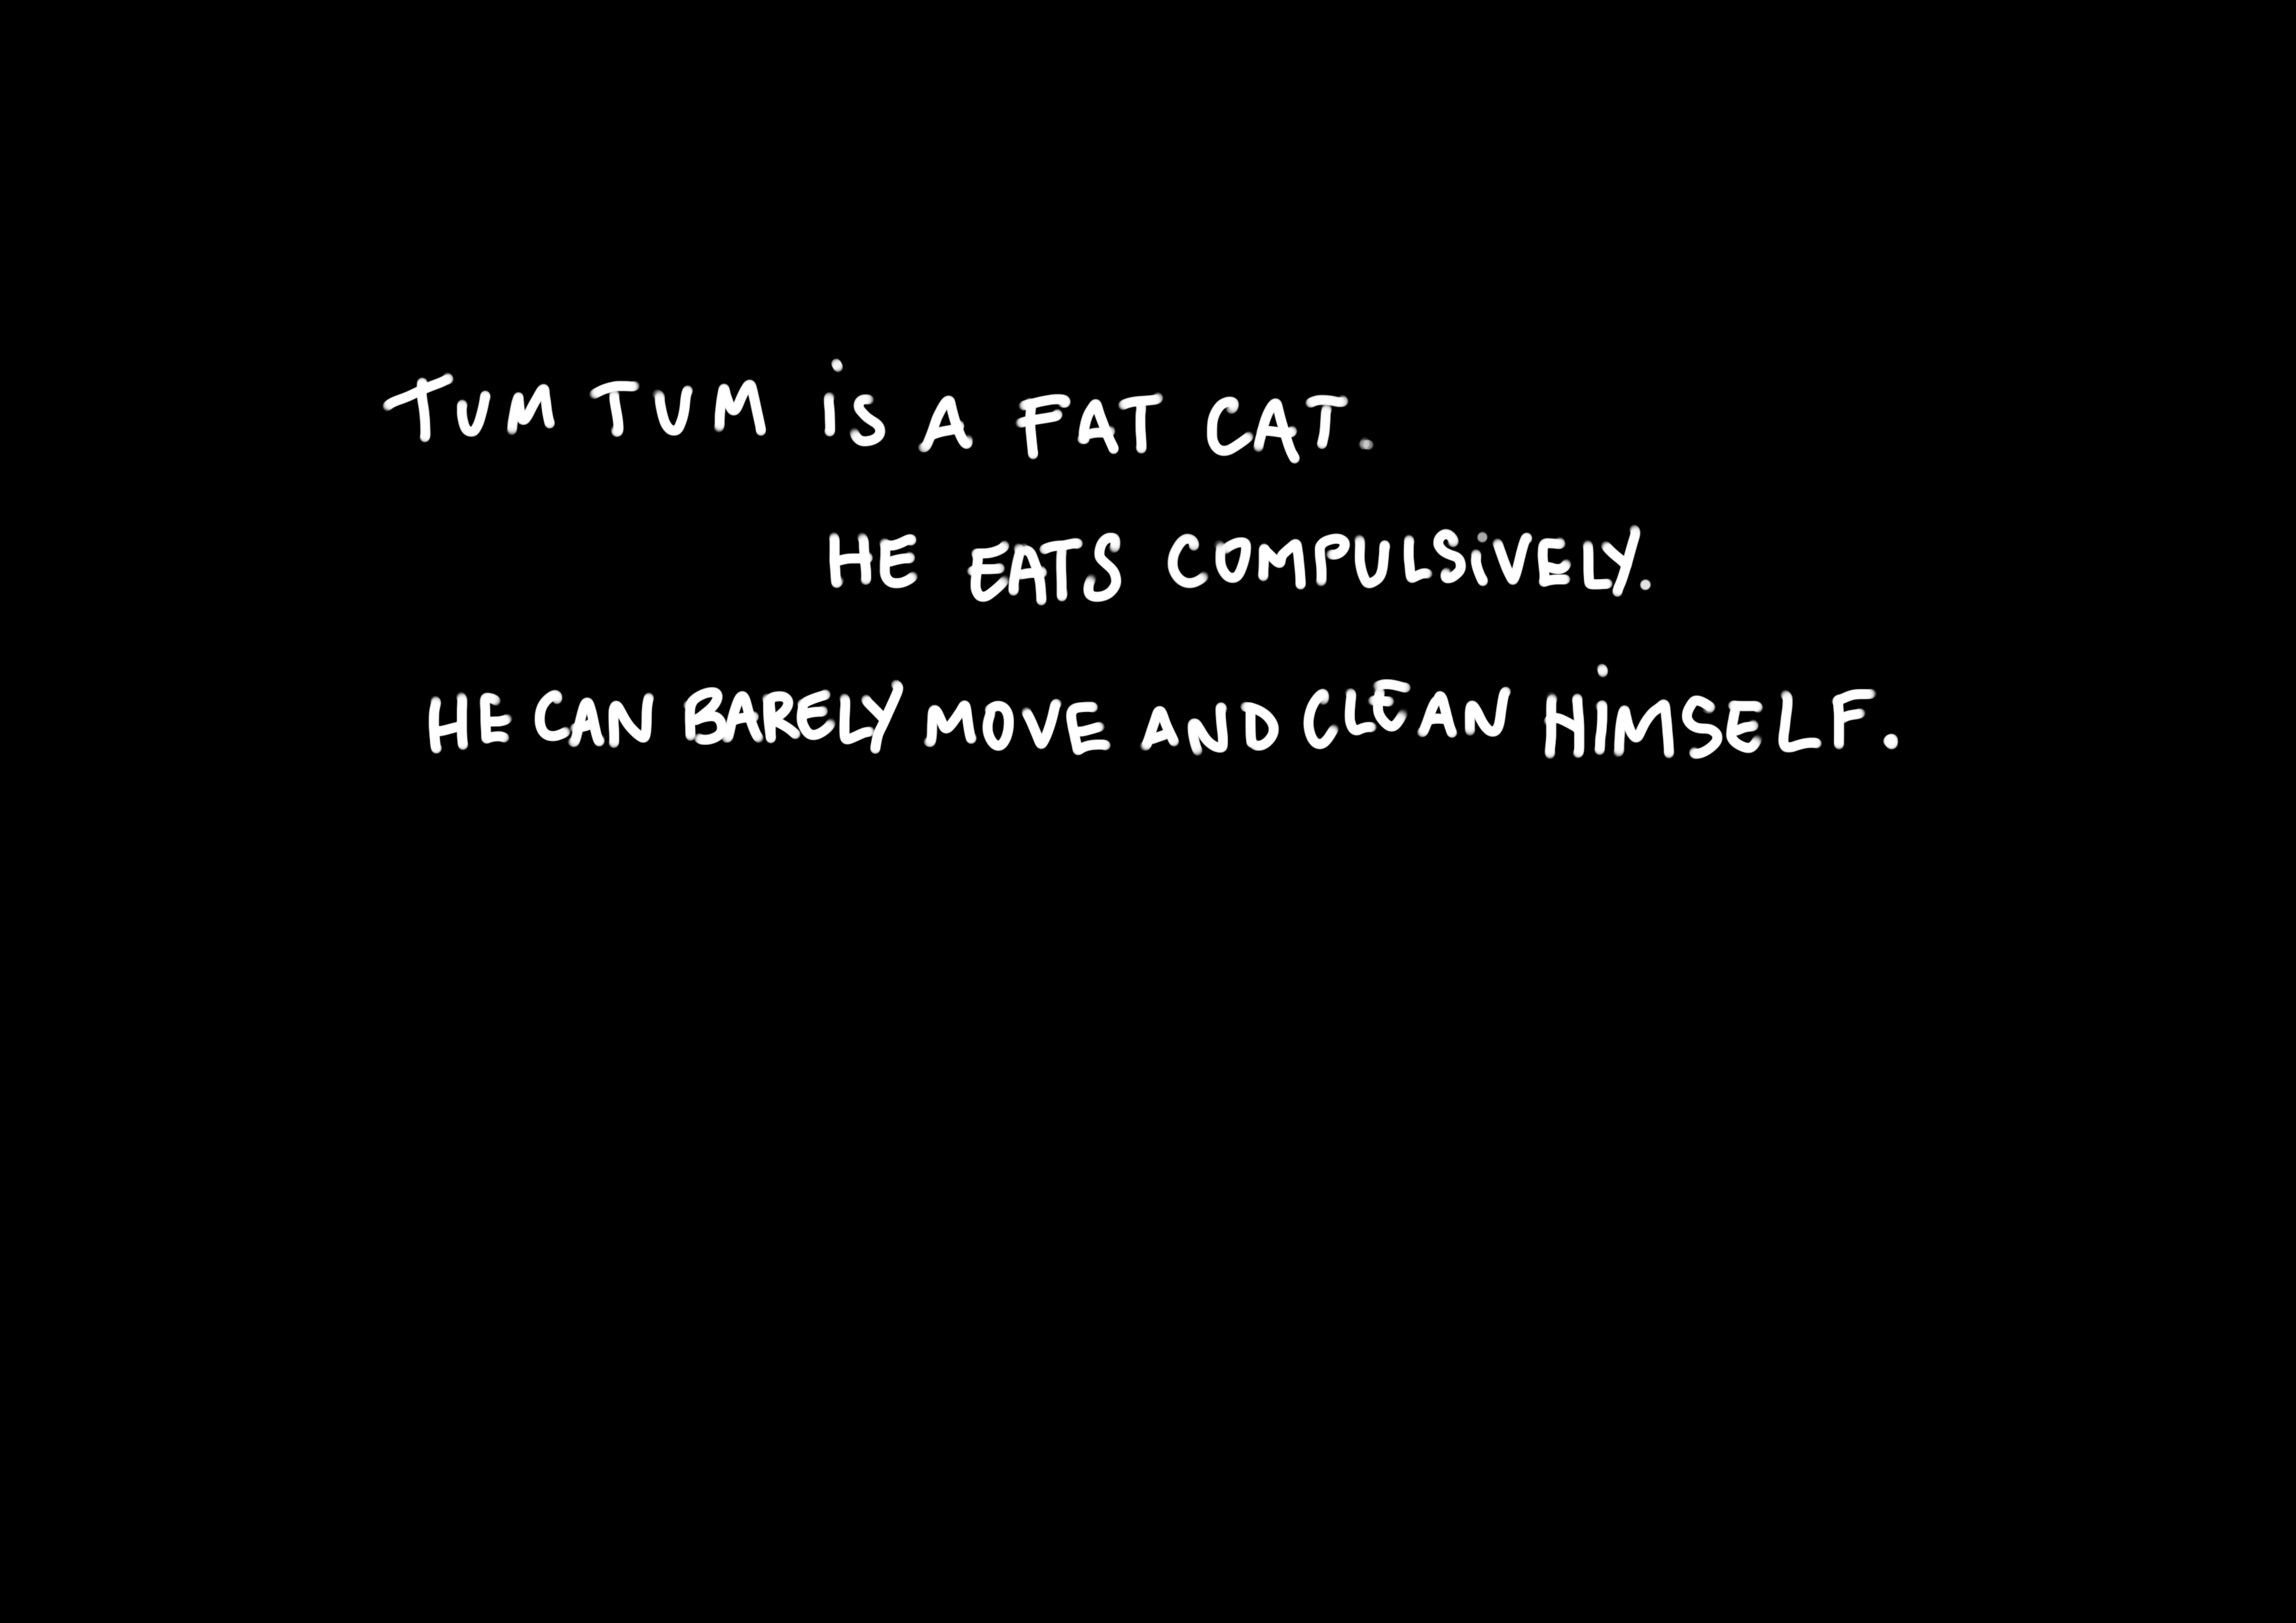 TUM TUM iS A FAT CAT.
HE EATS COMPULSiVELY.
HE CAN BARELY MOVE AND CLEAN HiMSELF.